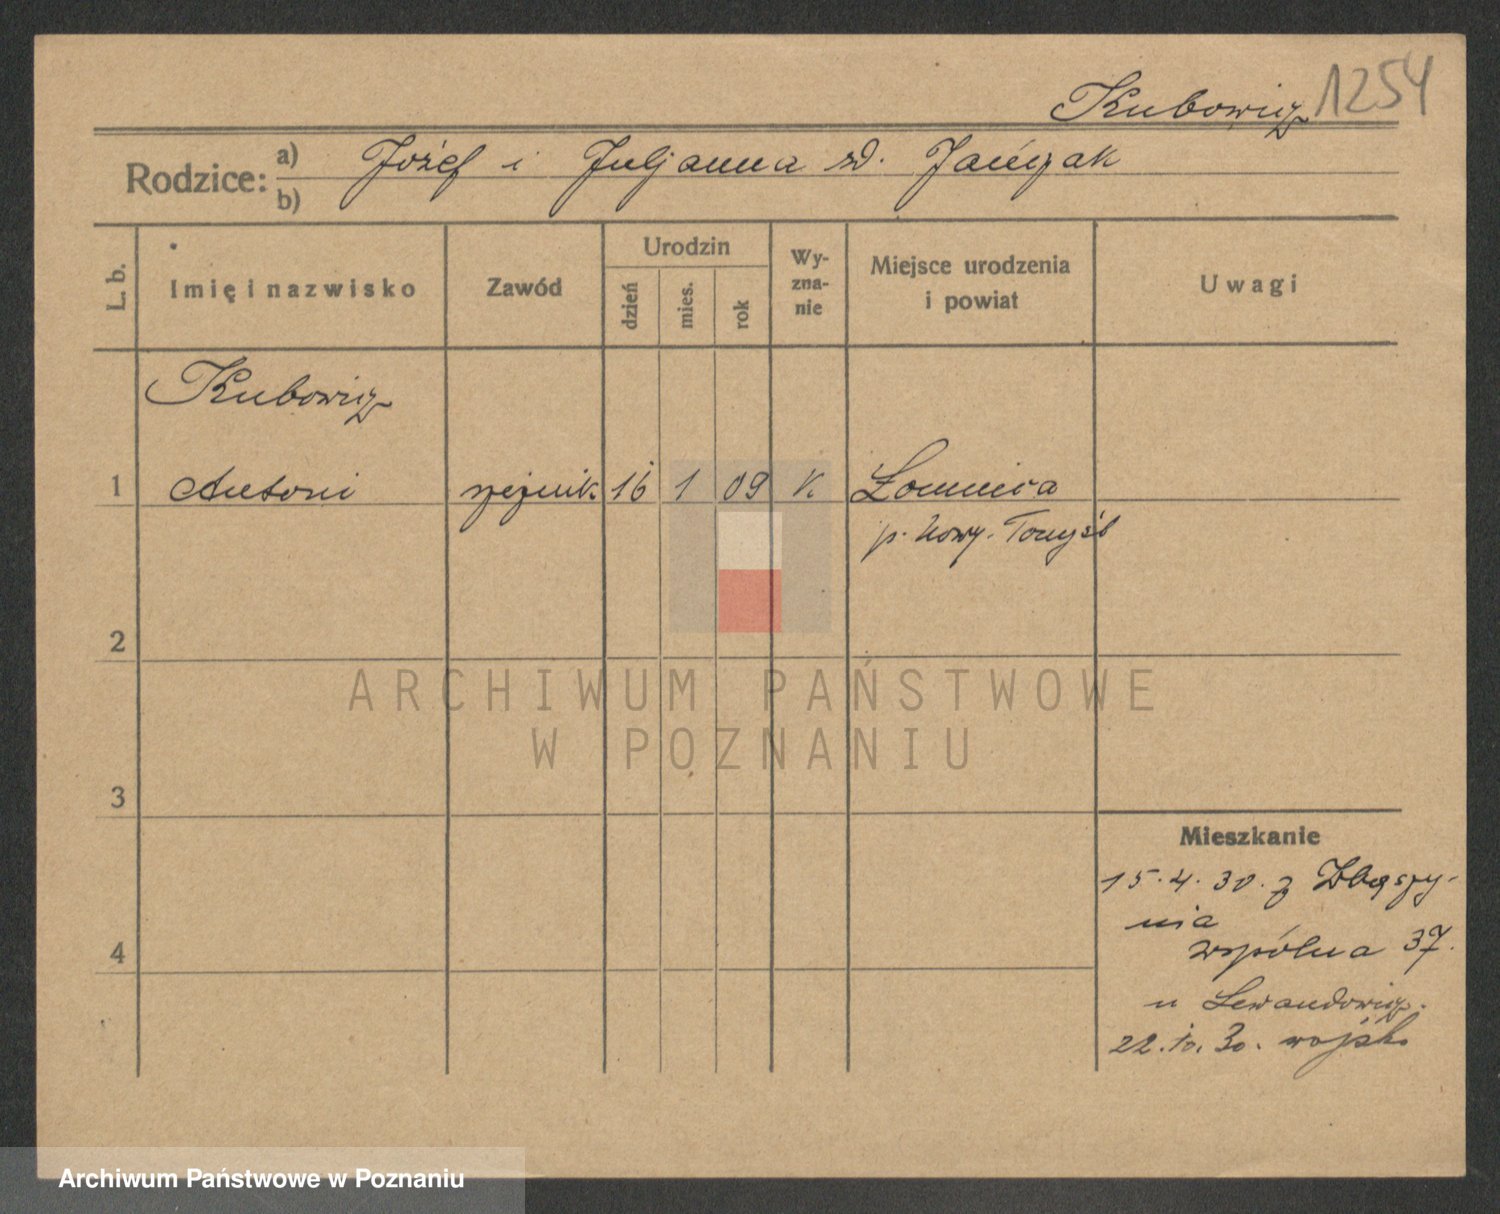 Kubowicz 1254
Rodzice: a) Józef i Juljanna zd. Jańczak
b)
L. b.
Imię i nazwisko
Zawód
Urodzin
dzień
mies.
rok
Wy-
zna-
nie
Miejsce urodzenia
i powiat
Uwagi
Kubowicz
1 Antoni rzeźnik 16 1 09 K Łomnica
p. Nowy-Tomyśl
2
ARCHIWUM PAŃSTWOWE
W POZNANIU
3
Mieszkanie
15.4.30. z Zbąszy-
nia
4
wspólna 37.
u Lewandowicz.
22.10.30. wojsko
Archiwum Państwowe w Poznaniu